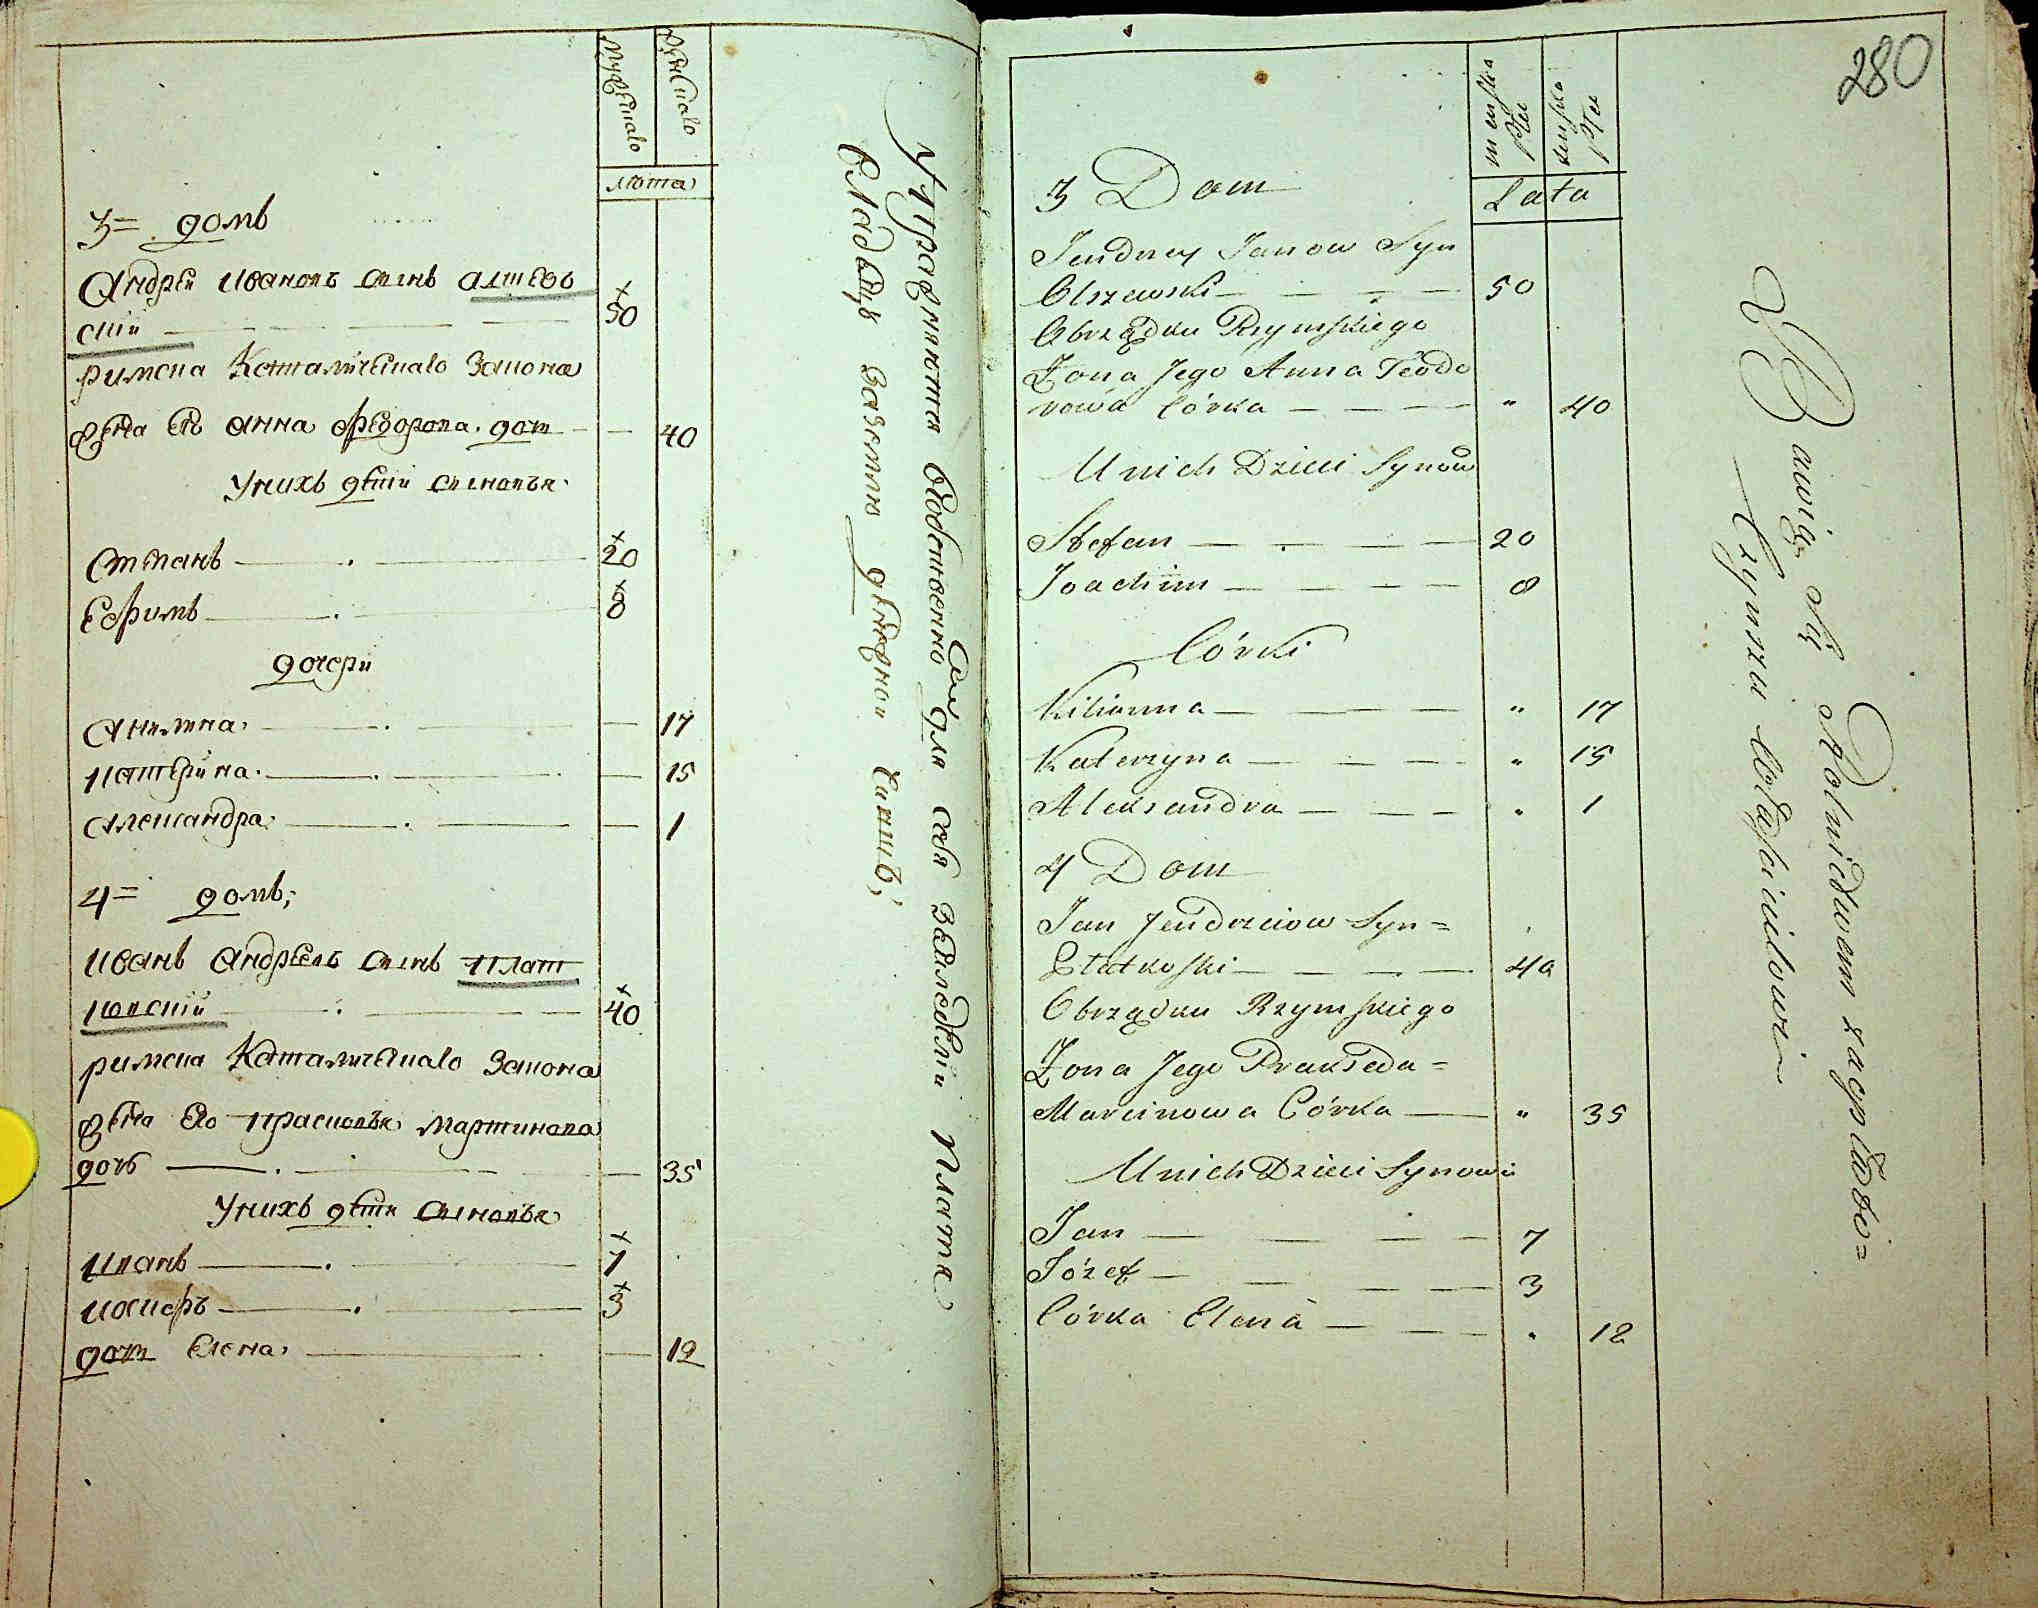 мужескаго
женскаго
лѣта
3= домъ
Андрей Ивановъ сынъ Алшев
скiй 50
римска Католическаго Закона
жена его Анна Федорова дочь 40
У нихъ дѣти сыновья
Степанъ 20
Ефимъ 8
дочери
Акилина 17
Катерина 15
Александра 1
4= домъ;
Иванъ Андреевъ сынъ Плат
ковскiй 40
римска Католическаго Закона
жена его Прасковья Мартинова
дочь 35
У нихъ дѣти сыновья
Иванъ 7
Иосифъ 3
дочь Елена 12
Упражняются
для себя
Платя
владѣльцу за землю
280
męska
płeć
żeńska
płeć
Lata
3 Dom
Jendrzey Janow Syn
Olszewski 50
Obrządku Rzymskiego
Żona Jego Anna Teodo
rowa Córka " 40
U nich Dzieci Synow
Stefan 20
Joachim 8
Córki
Kilianna " 17
Katerzyna " 15
Aleksandra " 1
4 Dom
Jan Jendrzeiow Syn=
Płatkoski 40
Obrządku Rzymskiego
Żona Jego Prakseda=
Marcinowa Córka " 35
U nich Dzieci Synowi
Jan 7
Józef 3
Córka Elena 12
Bawią się Rolnictwem
Czynszu